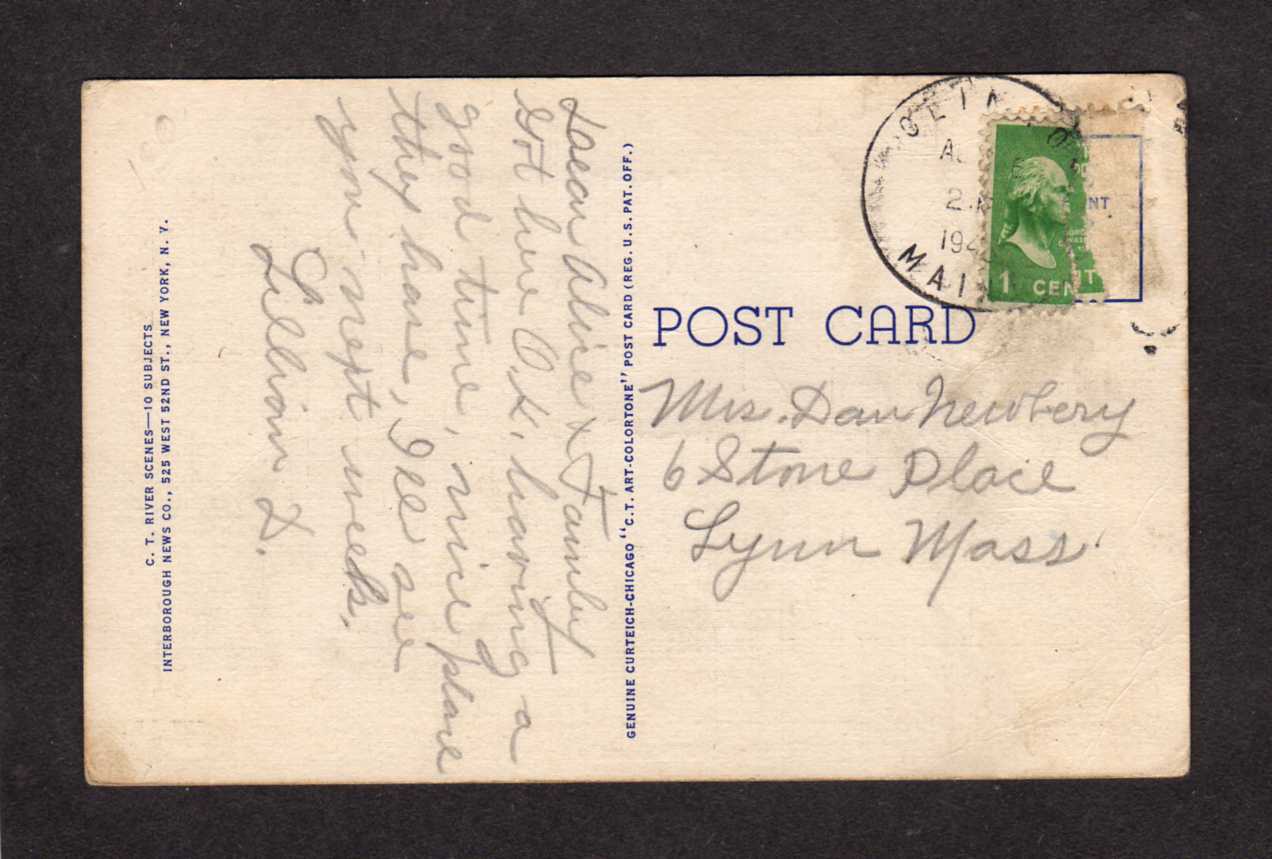 Dear Alice & Family
Got here O.K. having a
good time, nice place
they have, I'll see
you next week.
Lillian L.
C. T. RIVER SCENES—10 SUBJECTS
INTERBOROUGH NEWS CO., 525 WEST 52ND ST., NEW YORK, N. Y.
GENUINE CURTEICH-CHICAGO "C.T. ART-COLORTONE" POST CARD (REG. U.S. PAT. OFF.)
POST CARD
Mrs. Dan Newbery
6 Stone Place
Lynn Mass.
2
194
MAI
1 CENT